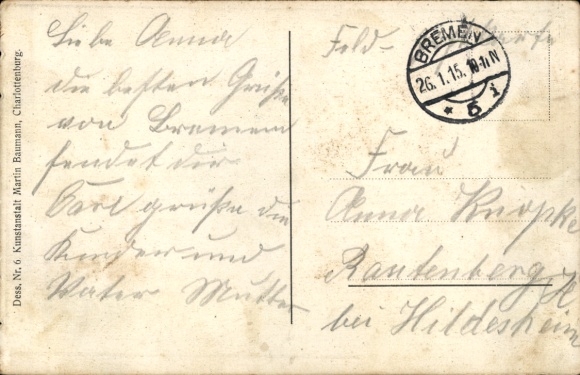 Dess. Nr. 6 Kunstanstalt Martin Baumann, Charlottenburg.
Liebe Anna
die besten Grüße
von Bremen
sendet dir
Carl grüße die
Kinder und
Vater Mutter
Feld-karte
BREMEN
26.1.15. 10-11 N
* 5 i
Frau
Anna Knopke
Rautenberg
bei Hildesheim